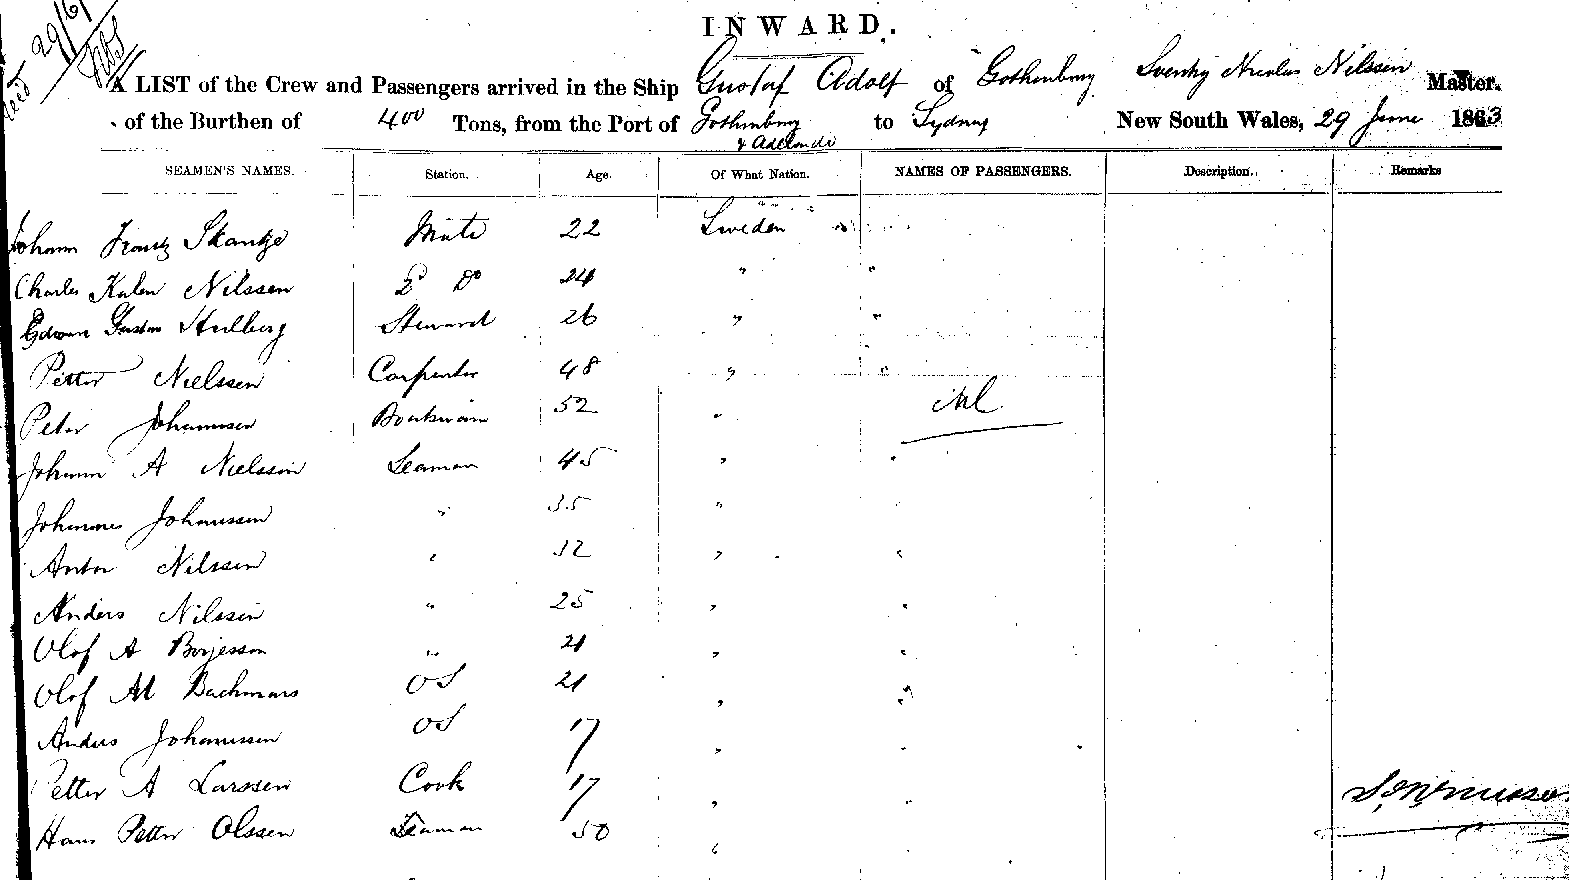 INWARD.
A LIST of the Crew and Passengers arrived in the Ship Gustaf Adolf of Gothenburg Nilssen Master.
of the Burthen of 400 Tons, from the Port of Gothenburg to Sydney New South Wales, 29 June 1863
& Adelaide
SEAMEN'S NAMES. Station. Age. Of What Nation. NAMES OF PASSENGERS. Description. Remarks
Johann Frantz Skantze Mate 22 Sweden
Charles Nilssen 2d Do 24 "
Steward 26 "
Petter Nielssen Carpenter 48 "
Peter Johannssen Boatswain 52 " Nil
Johann A Nielssen Seaman 45 "
Johannes Johanssen " 35 "
Anton Nilssen " 32 "
Anders Nilssen " 25 "
Olof A Borjesson " 21 "
Olof M Bachmans OS 21 "
Anders Johannssen OS 17 "
Petter A Larssen Cook 17 "
Hans Petter Olssen Seaman 50 "